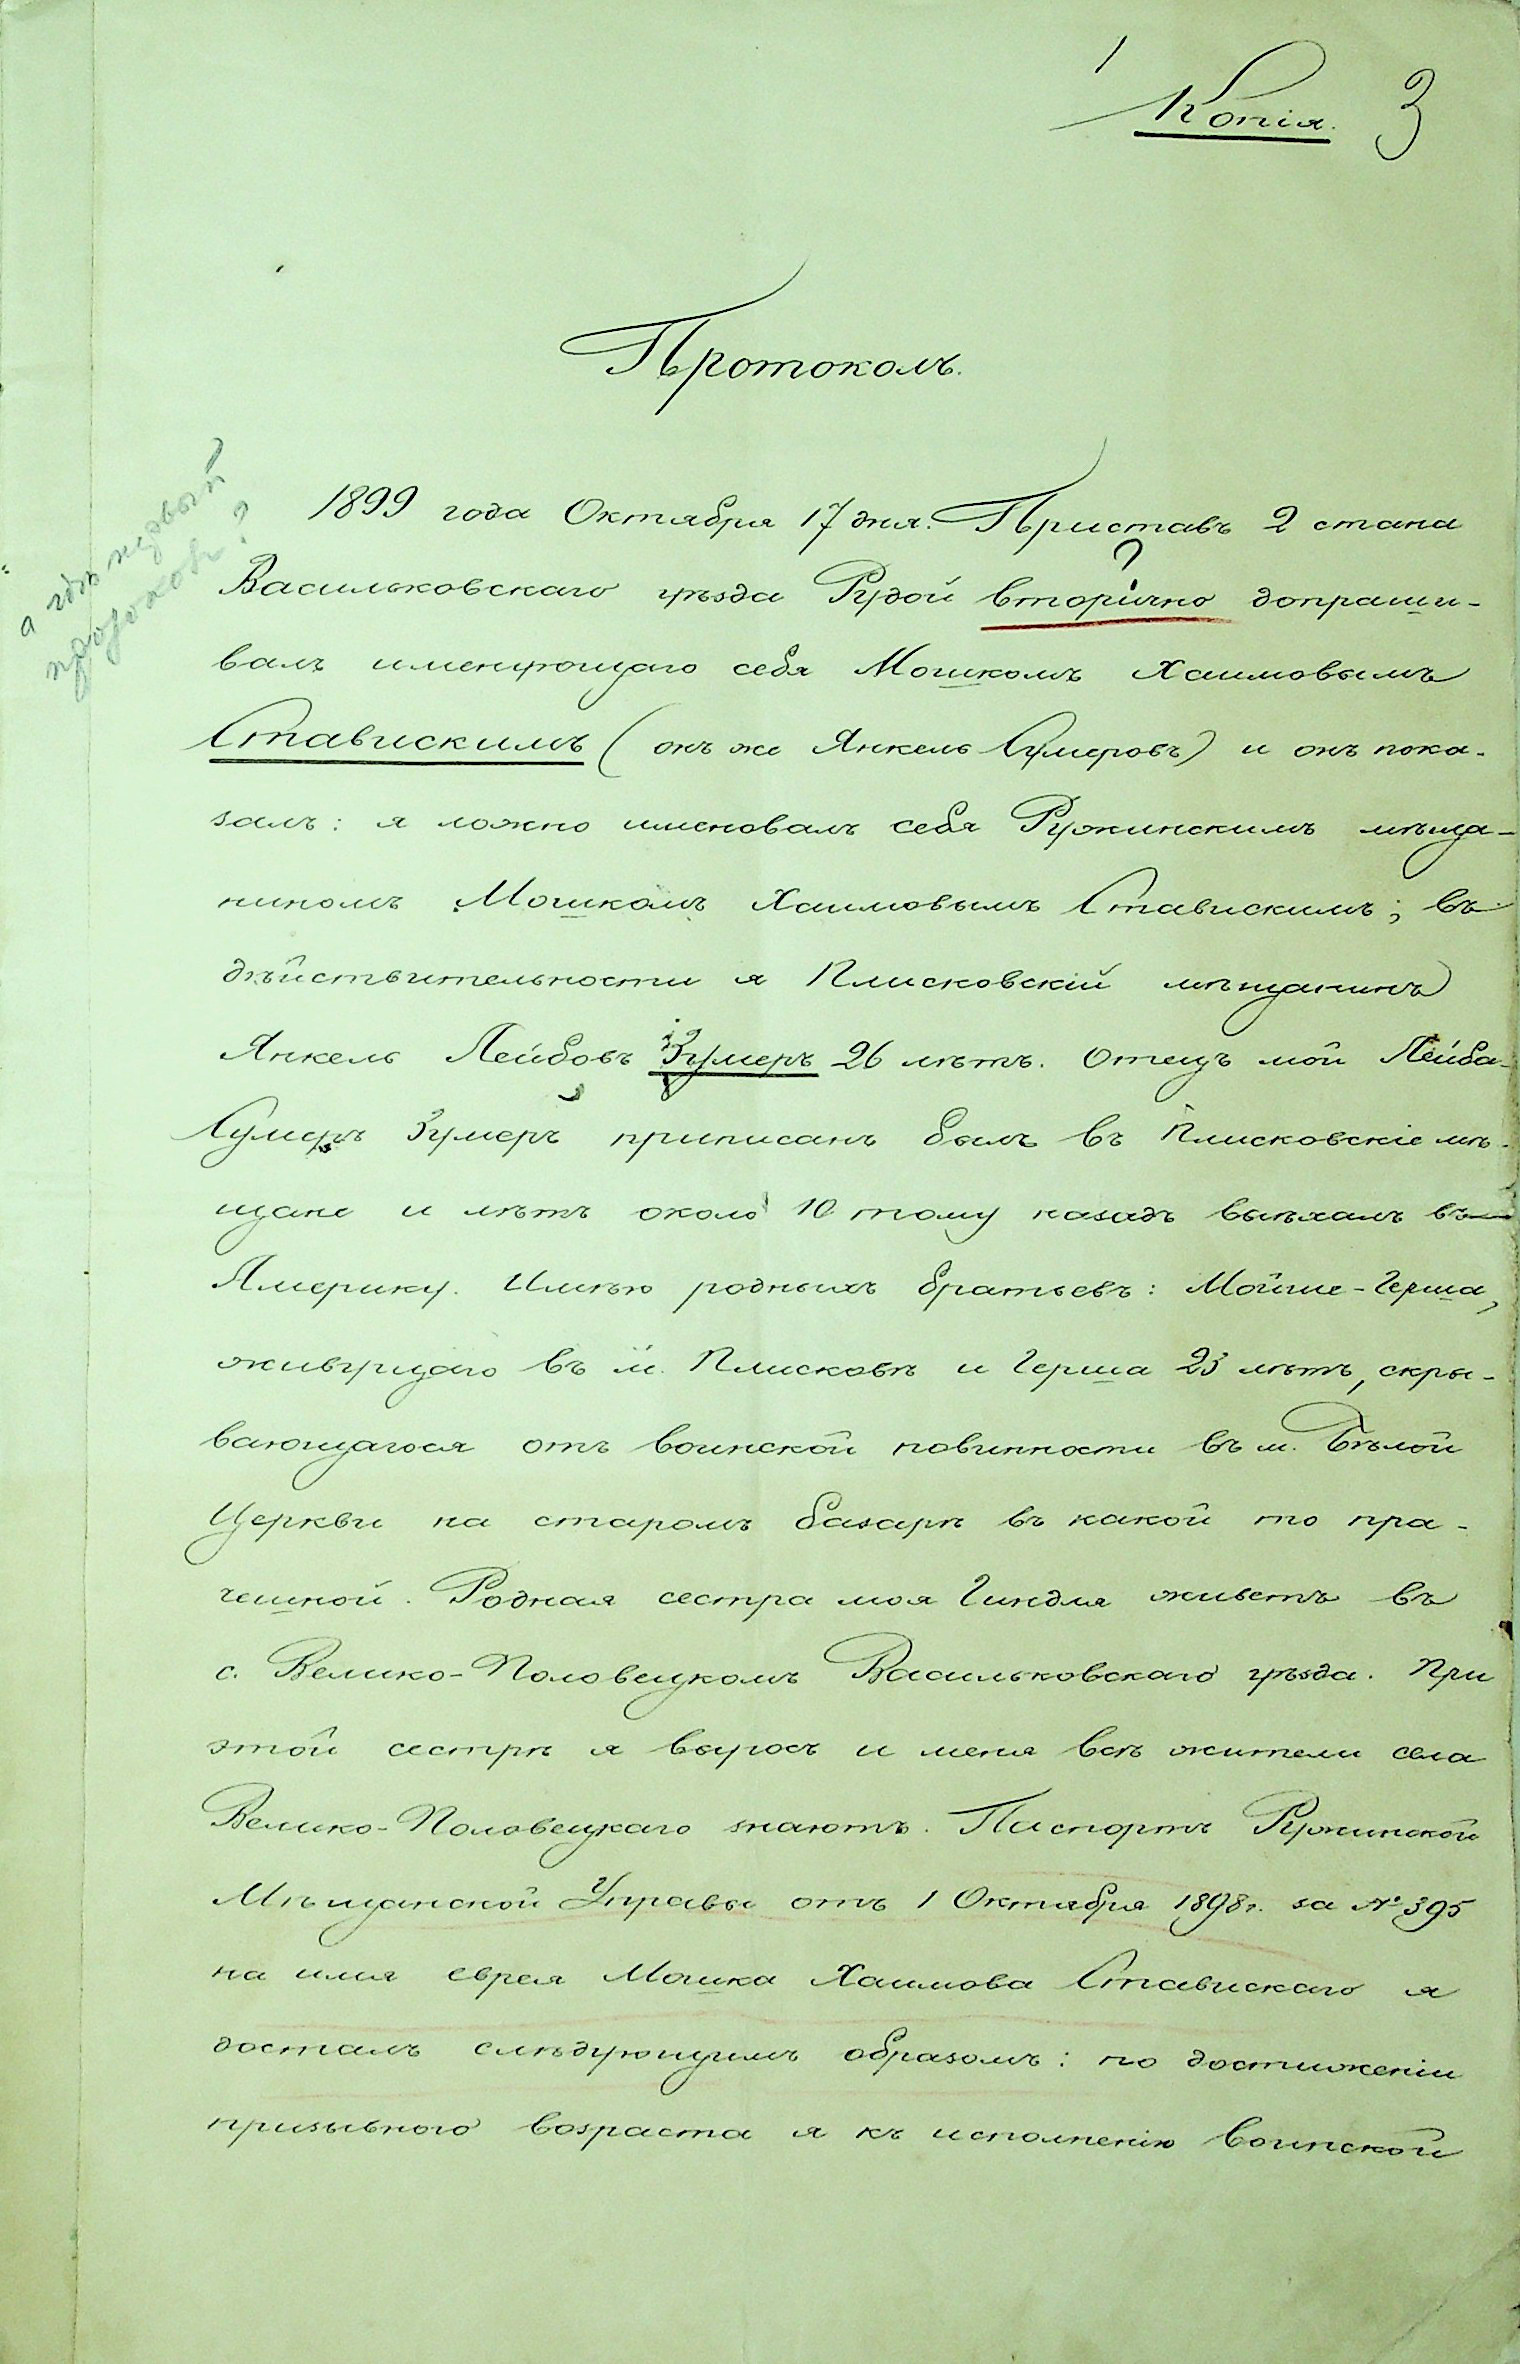 Копія. 3
Протоколъ.
а гдѣ первый
протоколъ?
1899 года Октября 17 дня. Приставъ 2 стана
Васильковскаго уѣзда Рудой вторично допраши-
?
валъ именующаго себя Мошкомъ Хаимовымъ
Ставискимъ (онъ же Янкель Сумеровъ) и онъ пока-
залъ: я ложно именовалъ себя Ружинскимъ мѣща-
ниномъ Мошкомъ Хаимовымъ Ставискимъ; въ
дѣйствительности я Плисковскій мѣщанинъ
Янкель Лейбовъ Зумеръ 26 лѣтъ. Отецъ мой Лейба-
Сумеръ Зумеръ приписанъ былъ въ Плисковскіе мѣ-
щане и лѣтъ около 10 тому назадъ выѣхалъ въ
Америку. Имѣю родныхъ братьевъ: Мойше-Герша,
живущаго въ м. Плисковѣ и Герша 23 лѣтъ, скры-
вающагося отъ воинской повинности въ м. Бѣлой
Церкви на старомъ базарѣ въ какой то пра-
чешной. Родная сестра моя Гиндля живетъ въ
с. Велико-Половецкомъ Васильковскаго уѣзда. При
этой сестрѣ я выросъ и меня всѣ жители села
Велико-Половецкаго знаютъ. Паспортъ Ружинской
Мѣщанской Управы отъ 1 Октября 1898 г. за № 395
на имя еврея Мошка Хаимова Ставискаго я
досталъ слѣдующимъ образомъ: по достиженіи
призывного возраста я къ исполненію воинской